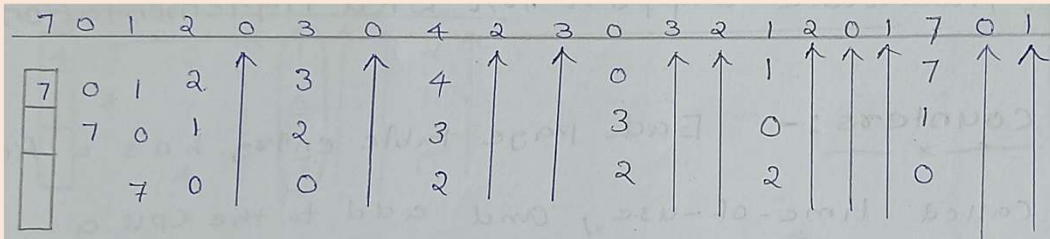 7 0 1 2 0 3 0 4 2 3 0 3 2 1 2 0 1 7 0 1
7 0 1 2 3 4 0 1 7
7 0 1 2 3 3 0 1
7 0 0 2 2 2 0